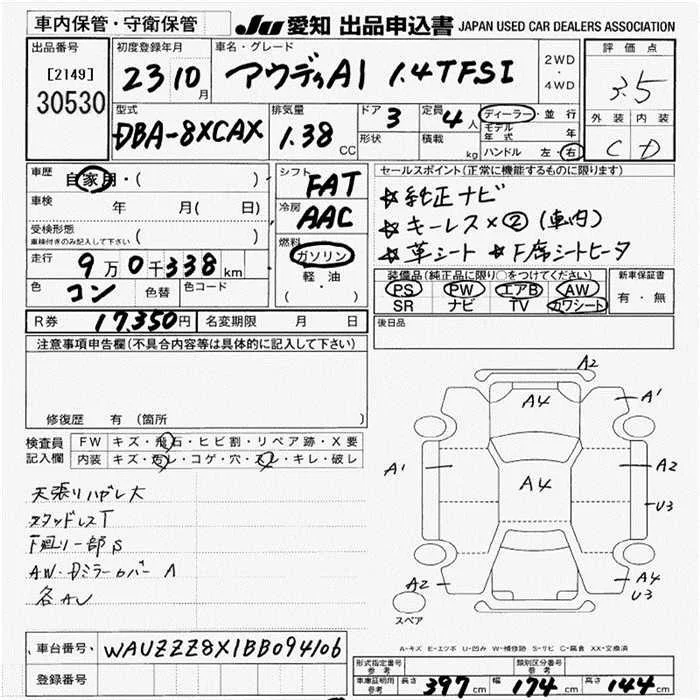 車内保管・守衛保管
JU 愛知 出品申込書 JAPAN USED CAR DEALERS ASSOCIATION
出品番号
[2149]
30530
初度登録年月
23 10月
車名・グレード
アウディA1 1.4TFSI
2WD
・
4WD
評価点
3.5
外装 内装
C D
型式
DBA-8XCAX
排気量
1.38 CC
ドア 3
形状
定員 4人
積載 kg
ディーラー・並行
モデル年式 年
ハンドル 左・右
車歴 自家用・( )
車検 年 月( 日)
受検形態
車検付きのみ記入して下さい ( )
走行 9万0千338km
色 コン 色替 色コード
シフト
FAT
冷房
AAC
燃料
ガソリン
軽・油
( ・ )
セールスポイント(正常に機能するものに限ります)
☆純正ナビ
☆キーレス×② (車内)
☆革シート ☆F席シートヒータ
装備品(純正品に限り○をつけてください)
PS PW エアB AW
SR ナビ TV カワシート
新車保証書
有・無
R券 17,350円 名変期限 月 日
後日品
注意事項申告欄(不具合内容等は具体的に記入して下さい)
修復歴 有 (箇所 )
検査員記入欄
FW キズ・飛石・ヒビ割・リペア跡・X要
内装 キズ・汚レ・コゲ・穴・スレ・キレ・破レ
天張リハガレ大
スタッドレスT
下廻リ一部S
AW・Dミラーカバー A
各AU
A2
A4
A1
A1
A4
A2
U3
A2
A4
U3
スペア
A-キズ E-エクボ U-凹み W-補修跡 S-サビ C-腐食 XX-交換済
車台番号 WAUZZZ8X1BB094106
登録番号
形式指定番号
参考
類別区分番号
参考
車庫証明用
参考
長さ 397cm 幅 174cm 高さ 144cm